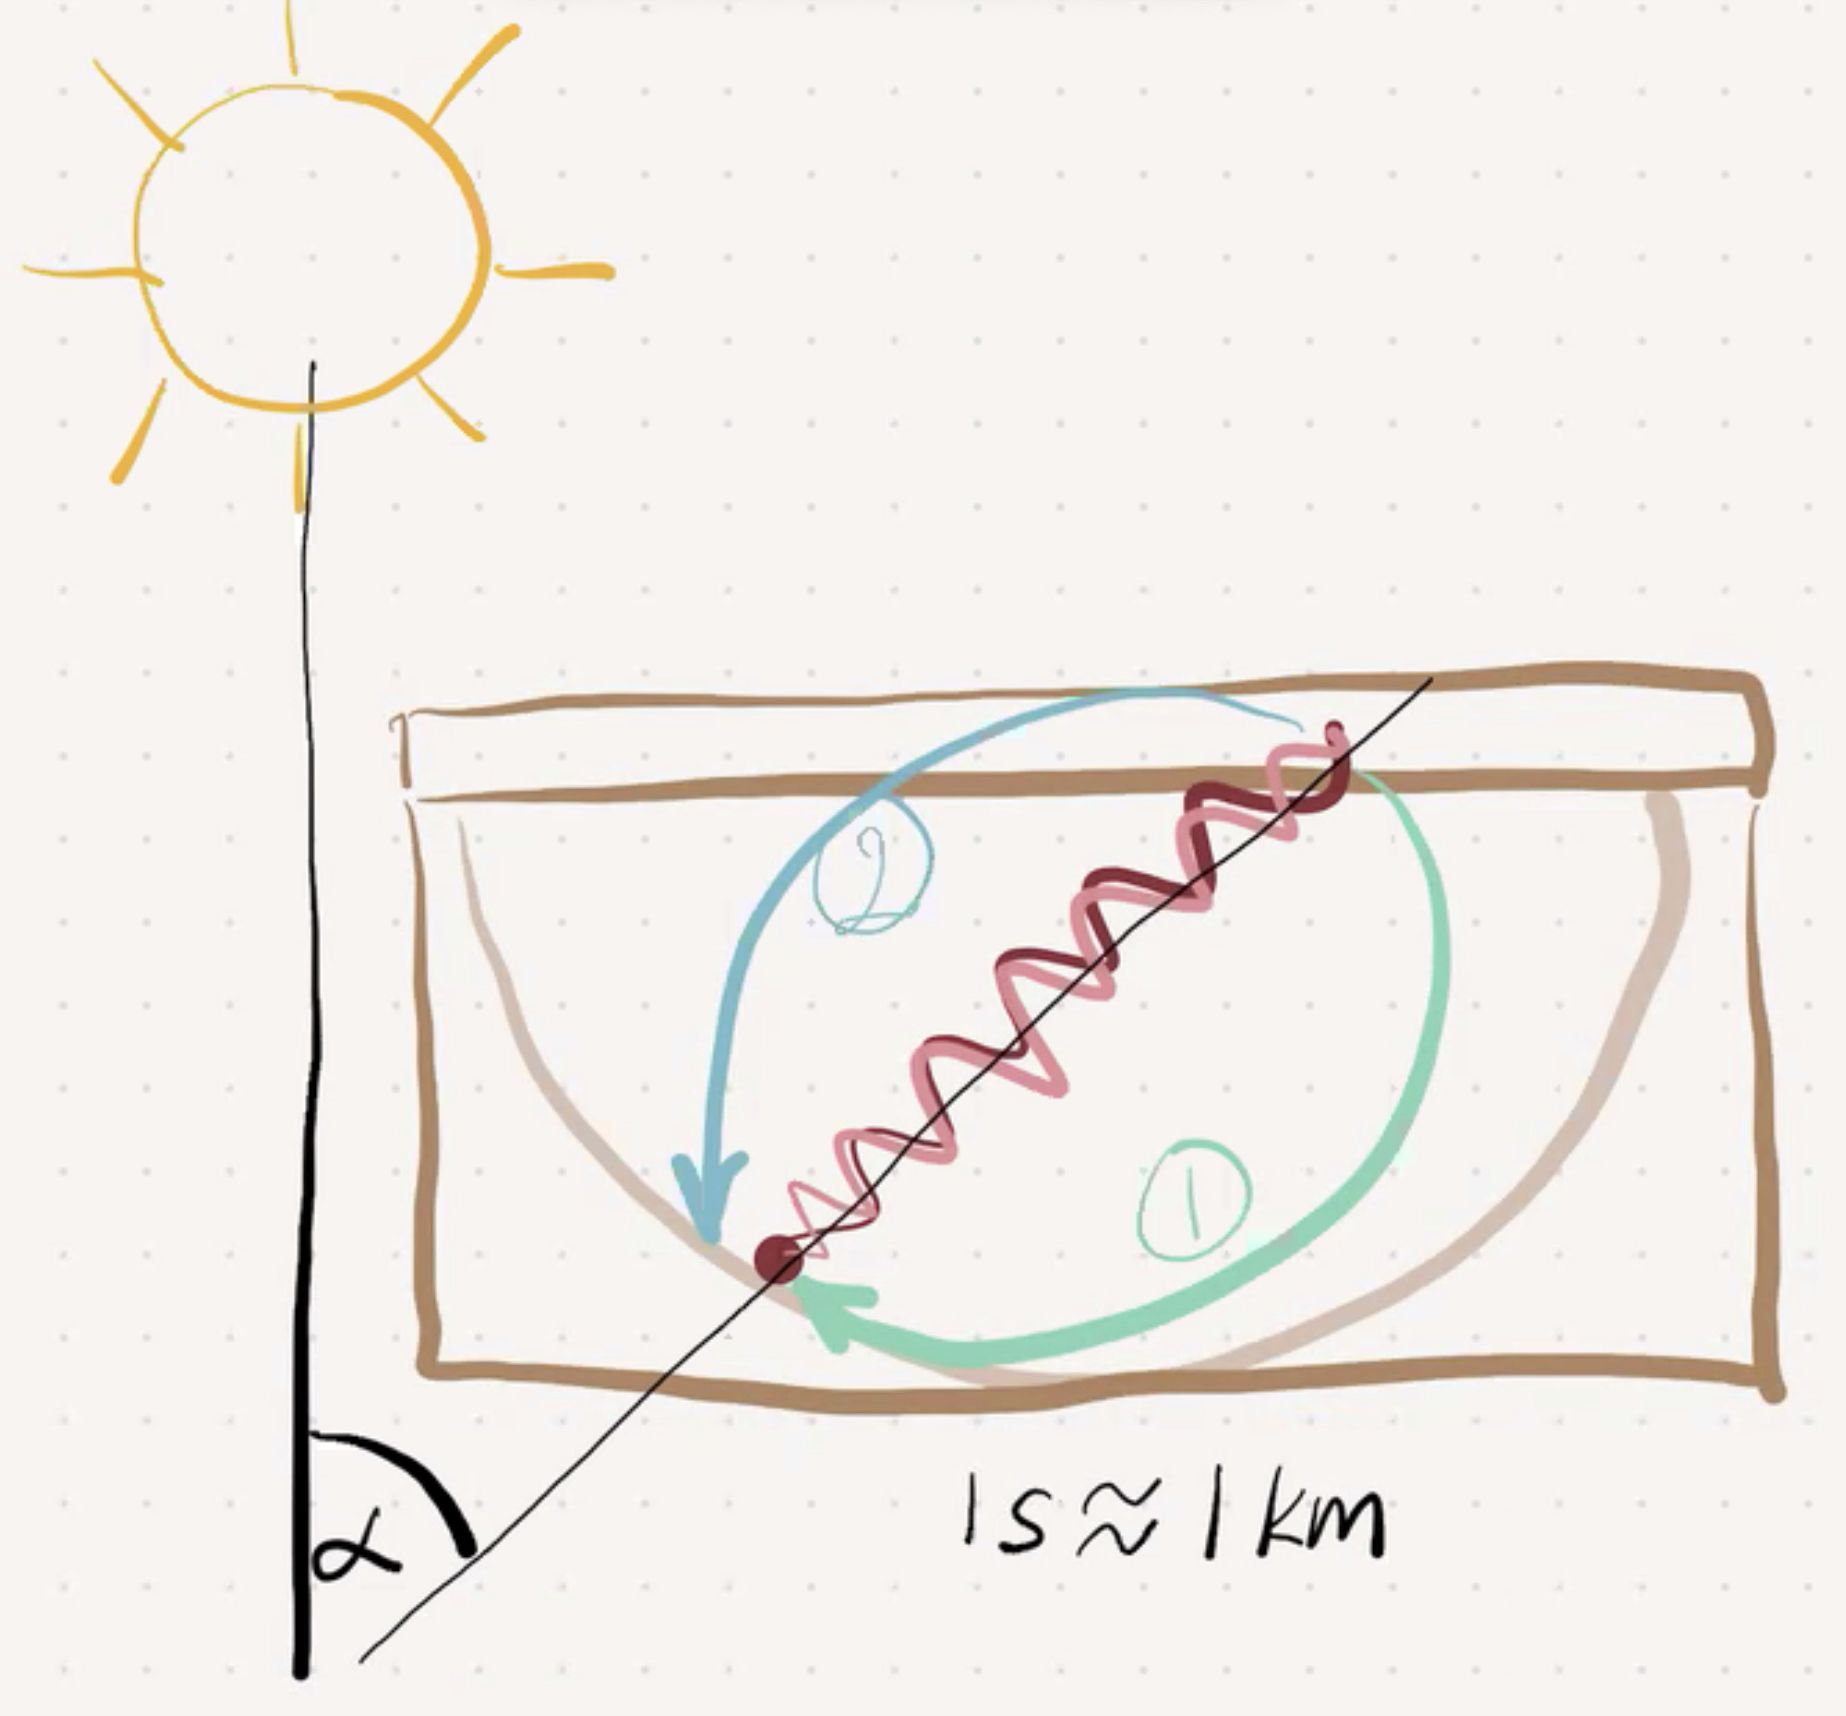 2
1
α
1s ≈ 1 km